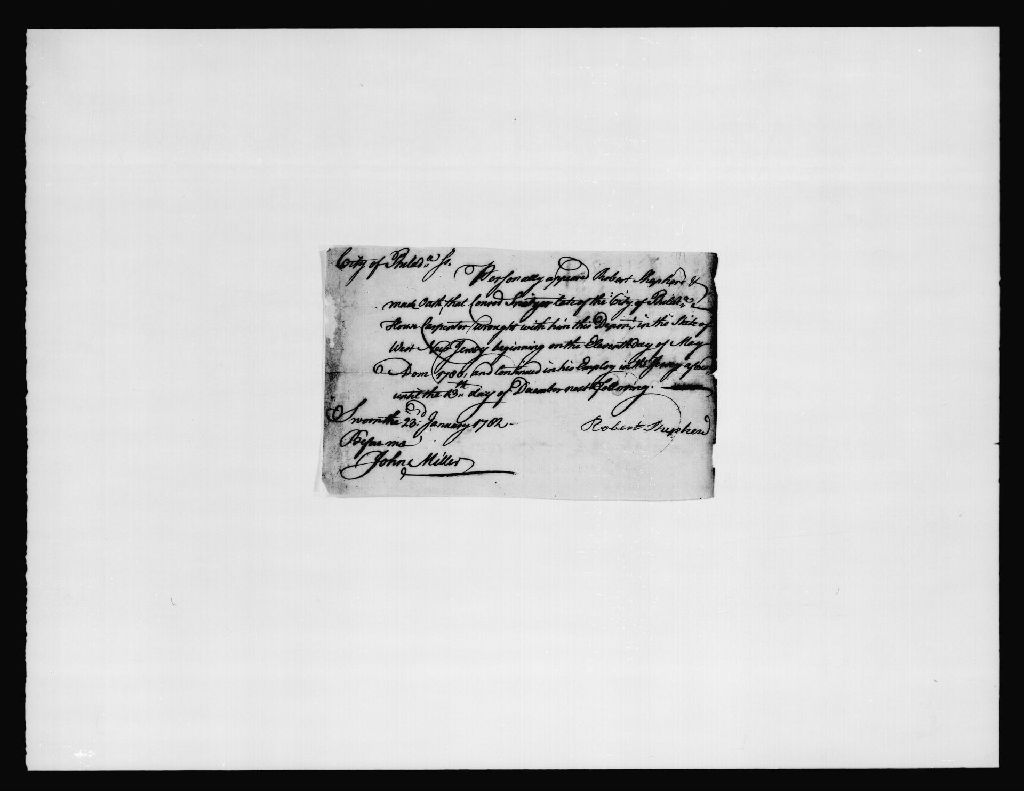 City of Philada. ss.
Personally appeared Robert Shepherd &
made Oath, that Conrod late of the City of Philada.
House Carpenter, wrought with him this Depont. in the State of
West New Jersey beginning on the Eleventh day of May
Dom: 1780, and continued in his Employ in the Jersey
until the 13th. day of December next following.
Sworn the 23rd January 1782
Before me
John Miller
Robert Shepherd